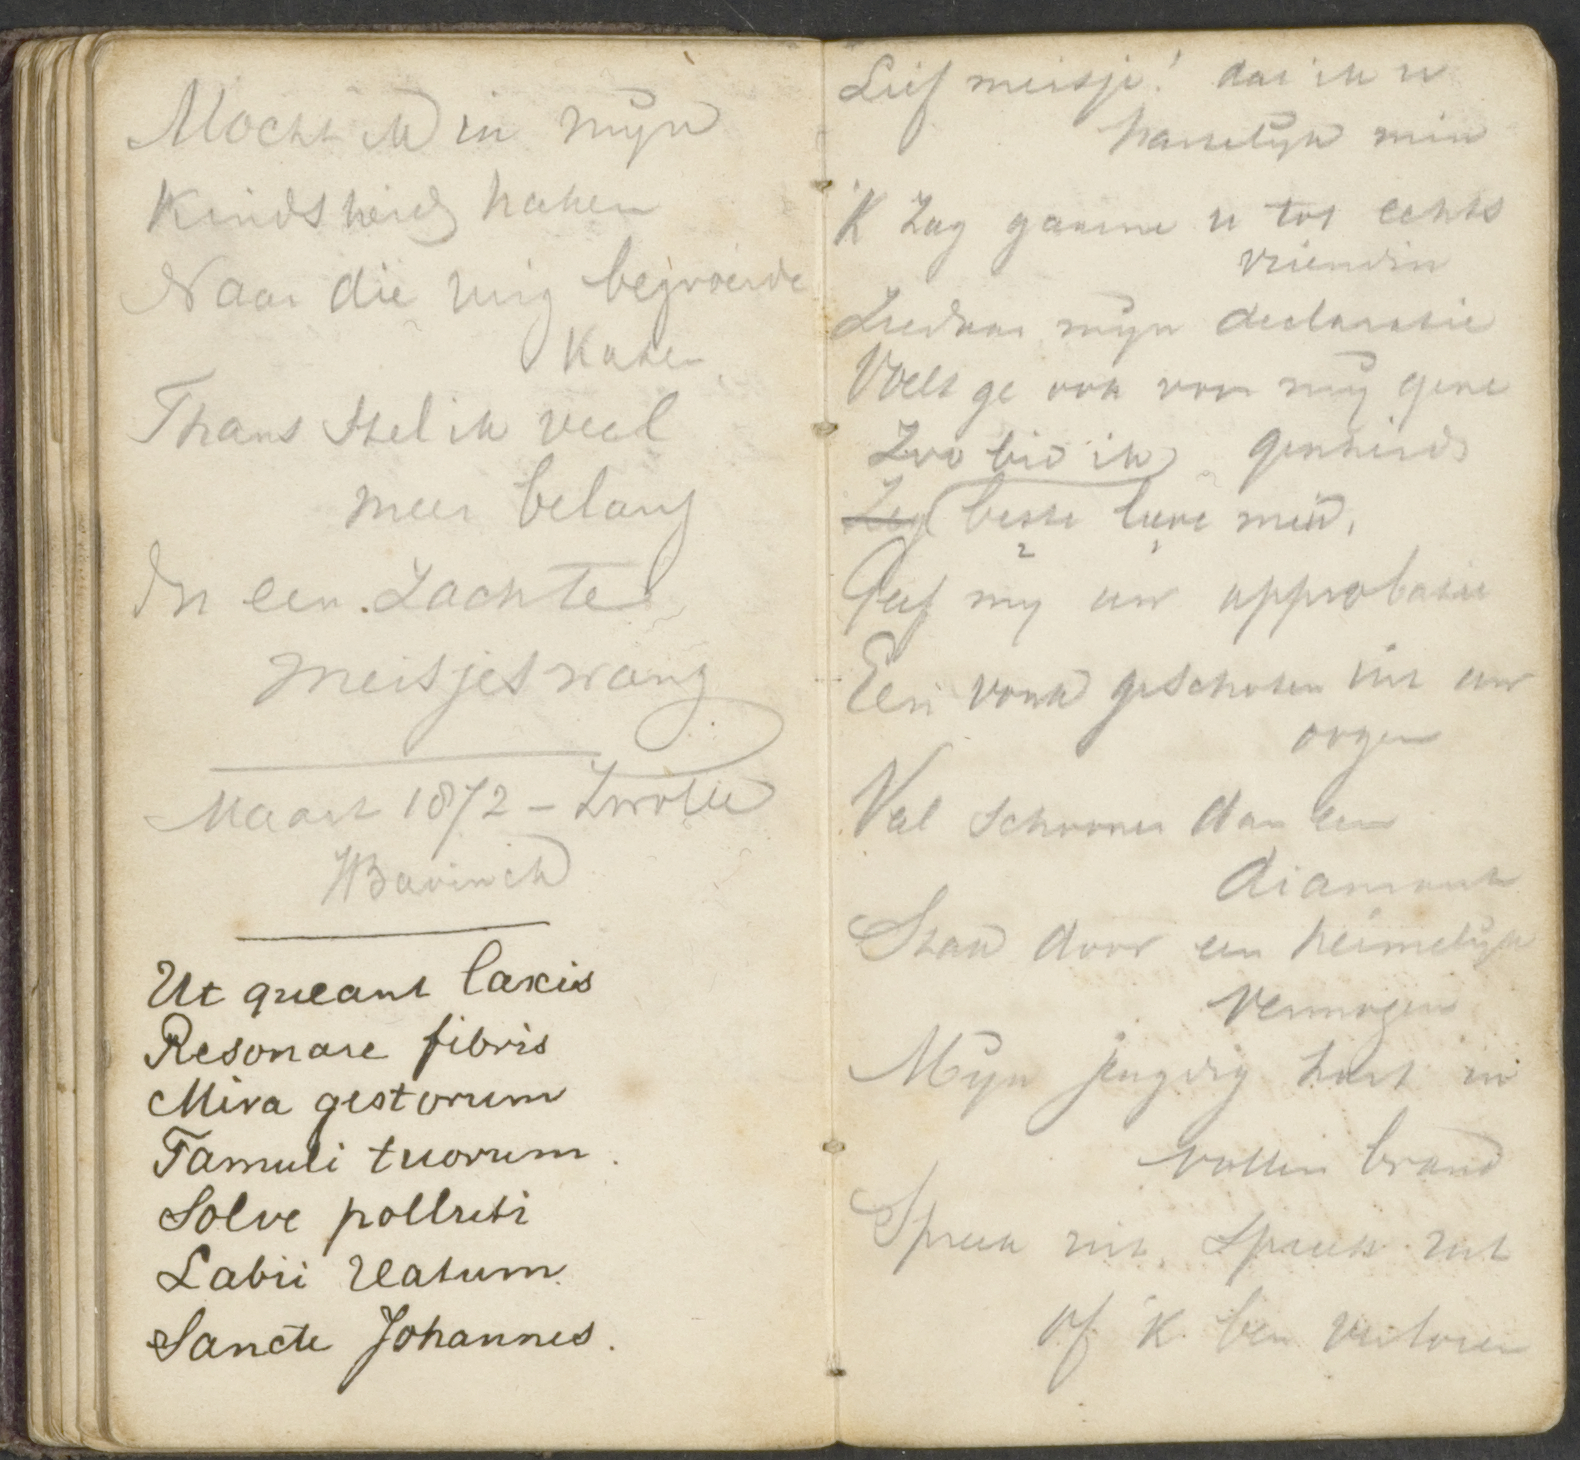 Mocht ik in mijn
Kindsheid haken
Naar die ruig begroeide
Kaken
Thans stel ik veel
meer belang
In een zachte
meisjeswang
Maart 1872 - Zwolle
HBavinck
Ut queant laxis
Resonare fibris
Mira gestorum
Famuli tuorum.
Solve polluti
Labii Reatum.
Sancte Johannes.
Lief meisje! dat ik u
harselijk min
'K Zag gaarne u tot echts
vriendin
Ziedaar mijn declaratie
Voelt ge ook voor mij gene
Zoo bid ik genheid
Zeg beste lieve min,
2 1
Geef mij uw approbatie
Een vonk geschoten uit uw
oogen
Veel schooner dan een
diamant
Stak door een heimelijk
Vermogen
Mijn jeugdig hart in
vollen brand
Spreek uit, spreek uit
of 'k ben verloren